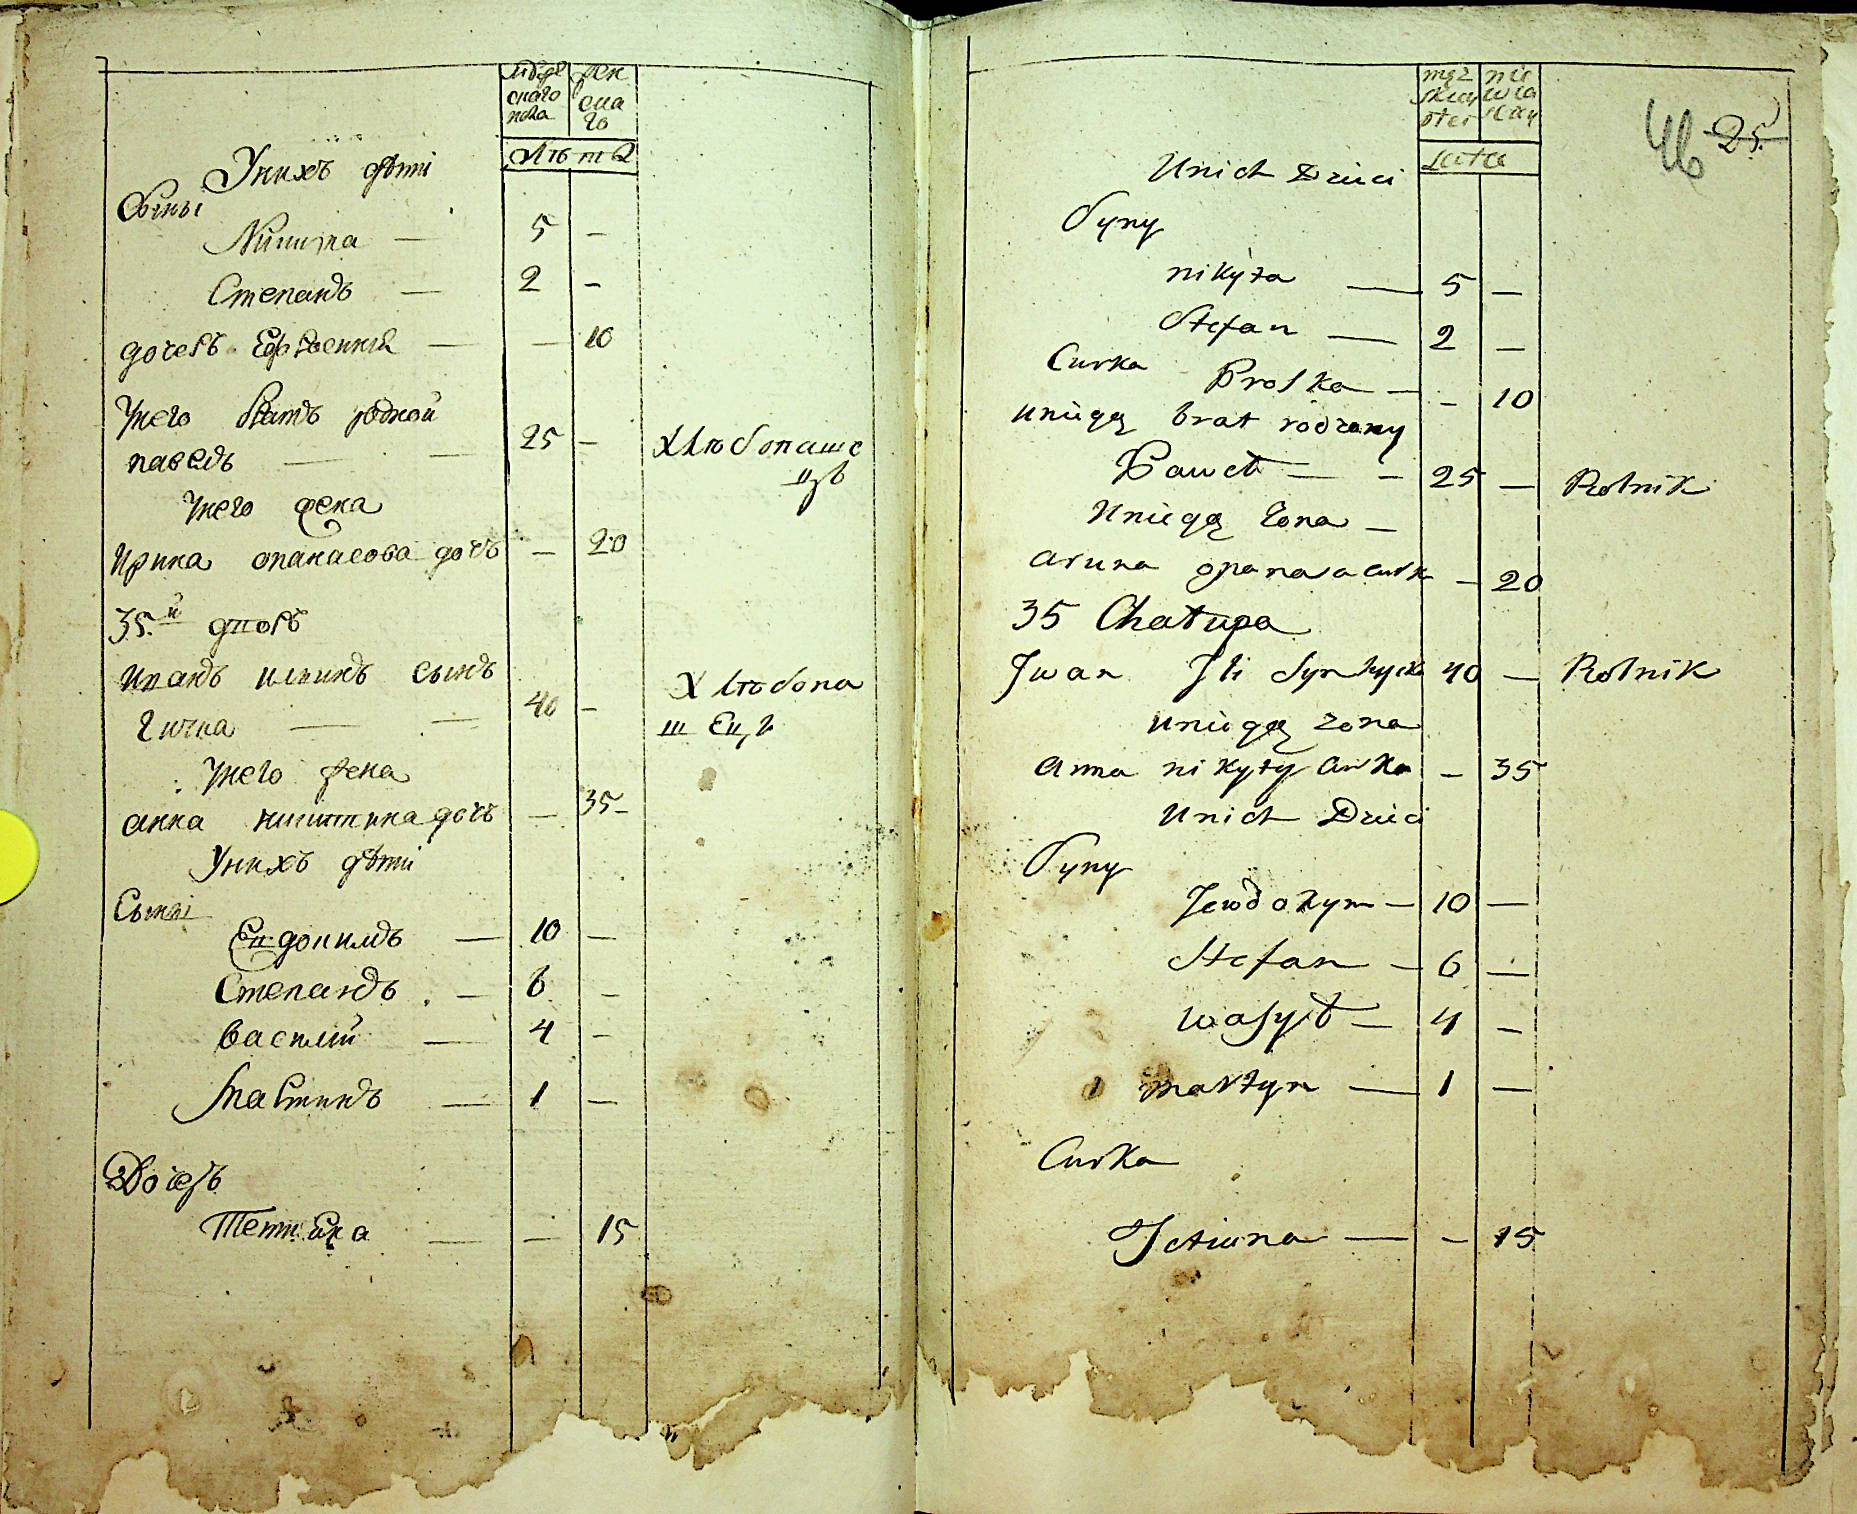 мужескаго пола
женскаго
Лѣтъ
У нихъ дѣти
Сыны
Никита — 5 —
Степанъ — 2 —
дочерь Ефросиния — — 10
У него братъ родной
павелъ — — 25 — Хлѣбопаше
цъ
У него жена
Ирина опанасова дочь — 20
35.й дворъ
Иванъ илиинъ сынъ
40 — Хлѣбопа
шецъ
У него жена
анна никитина дочь — 35 —
У нихъ дѣти
Сыны
Евдокимъ — 10 —
Степанъ — 6 —
василий — 4 —
Мартинъ — 1 —
Дочерь
Теттяна — — 15
46 25.
Lata
Unich Dzieci
Syny
nikyta — 5 —
Stefan — 2 —
Curka Proska — — 10
uniego brat rodzony
Paweł — — 25 — Rolnik
Uniego żona —
aryna opanasa curk — 20
35 Chałupa
Jwan Jli Syn 40 — Rolnik
uniego zona
anna nikyty curka — 35
Unich Dzieci
Syny
Jewdokym — 10 —
Stefan — 6 —
wasyl — 4 —
martyn — 1 —
Curka
Tetiana — — 15